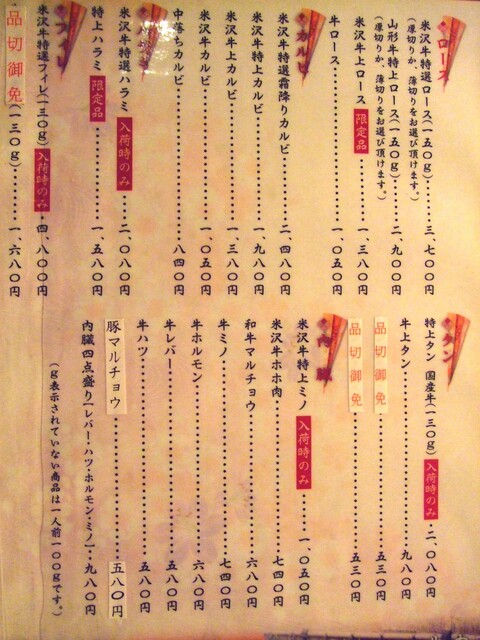 ロース
米沢牛特選ロース(一五〇g)…………三、七〇〇円
(厚切りか、薄切りをお選び頂けます。)
山形牛特上ロース(一五〇g)………二、九〇〇円
(厚切りか、薄切りをお選び頂けます。)
米沢牛上ロース 限定品………一、三八〇円
牛ロース………………一、〇五〇円
カルビ
米沢牛特選霜降りカルビ…………二、四八〇円
米沢牛特上カルビ…………一、九八〇円
米沢牛上カルビ…………一、三八〇円
米沢牛カルビ…………一、〇五〇円
中落ちカルビ…………八四〇円
米沢牛特選ハラミ 入荷時のみ…二、〇八〇円
特上ハラミ 限定品…………一、五八〇円
フィレ
米沢牛特選フィレ(一三〇g) 入荷時のみ…四、八〇〇円
品切御免(一三〇g)…………一、六八〇円
タン
特上タン 国産牛(一三〇g) 入荷時のみ…二、〇八〇円
牛上タン…………九八〇円
品切御免…………五三〇円
品切御免…………五三〇円
内臓
米沢牛特上ミノ 入荷時のみ……一、〇五〇円
米沢牛ホホ肉…………七四〇円
和牛マルチョウ…………六八〇円
牛ミノ…………七四〇円
牛ホルモン…………六八〇円
牛レバー…………五八〇円
牛ハツ…………五八〇円
豚マルチョウ…………五八〇円
内臓四点盛り(レバー・ハツ・ホルモン・ミノ)…九八〇円
(g表示されていない商品は一人前一〇〇gです。)